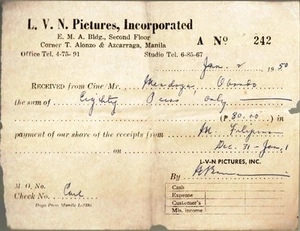 L. V. N. Pictures, Incorporated
E. M. A. Bldg., Second Floor
Corner T. Alonzo & Azcarraga, Manila
Office Tel. 4-75-91 Studio Tel. 6-85-67
A No 242
Jan. 2 1950
RECEIVED from Cine/Mr. Obando
the sum of Eighty Pesos only
(P 80.00 )
payment of our share of the receipts from
Dec. 31 - Jan. 1
L-V-N PICTURES, INC.
By
M. O. No.
Check No. Cash
Cash
Expense
Customer's
Mis. income